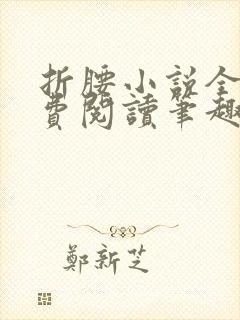 折腰小说全
費閱讀筆趣
鄭新芝